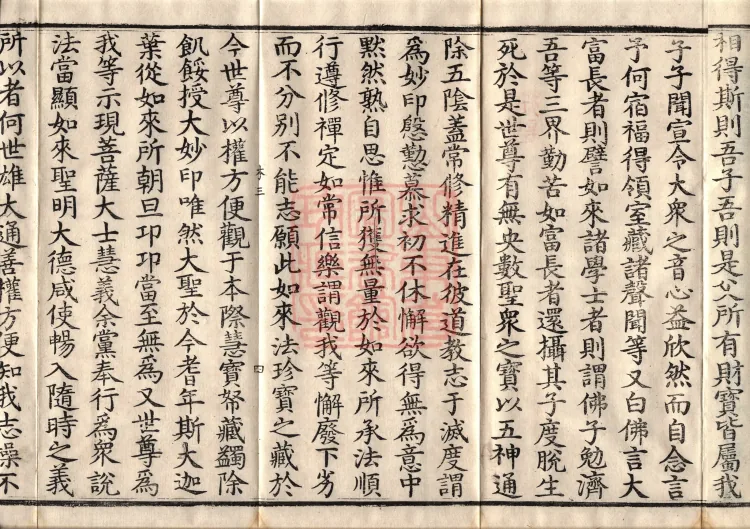 相得斯則吾子吾則是父所有財寶皆屬我
子子聞宣令大衆之音心益欣然而自念言
予何宿福得領室藏諸聲聞等又白佛言大
富長者則譬如來諸學士者則謂佛子勉濟
吾等三界勤苦如富長者還攝其子度脫生
死於是世尊有無央數聖衆之寶以五神通
除五陰蓋常修精進在彼道教志于滅度謂
為妙印慇懃慕求初不休懈欲得無為意中
黙然熟自思惟所獲無量於如來所承法順
行遵修禪定如常信樂謂觀我等懈廢下劣
而不分別不能志願此如來法珍寶之藏於
四
今世尊以權方便觀于本際慧寶帑藏蠲除
飢餒授大妙印唯然大聖於今耆年斯大迦
葉從如來所朝旦印印當至無為又世尊為
我等示現菩薩大士慧義余黨奉行為衆說
法當顯如來聖明大德咸使暢入隨時之義
所以者何世雄大通善權方便知我志操不